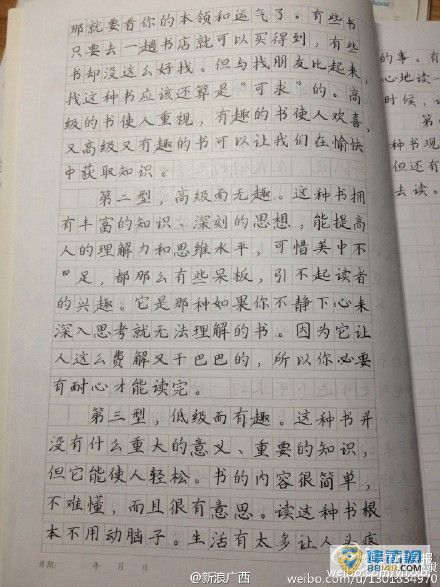 那就要看你的本领和运气了。有些书
只要去一趟书店就可以买得到，有些
书却没这么好找。但与找朋友比起来，
找这种书应该还算是“可求”的。高
级的书使人重视，有趣的书使人欢喜，
又高级又有趣的书可以让我们在愉快
中获取知识。
第二型，高级而无趣。这种书拥
有丰富的知识、深刻的思想，能提高
人的理解力和思维水平，可惜美中不
足，都那么有些呆板，引不起读者
的兴趣。它是那种如果你不静下心来
深入思考就无法理解的书。因为它让
人这么费解又干巴巴的，所以你必要
有耐心才能读完。
第三型，低级而有趣。这种书并
没有什么重大的意义、重要的知识，
但它能使人轻松。书的内容很简单，
不难懂，而且很有意思。读这种书根
本不用动脑子。生活有太多让人头疼
日期： 年 月 日
的事。有
心地读
时候，
第
种书现
但还有
去读。
@新浪广西
weibo.com/u/2301334970